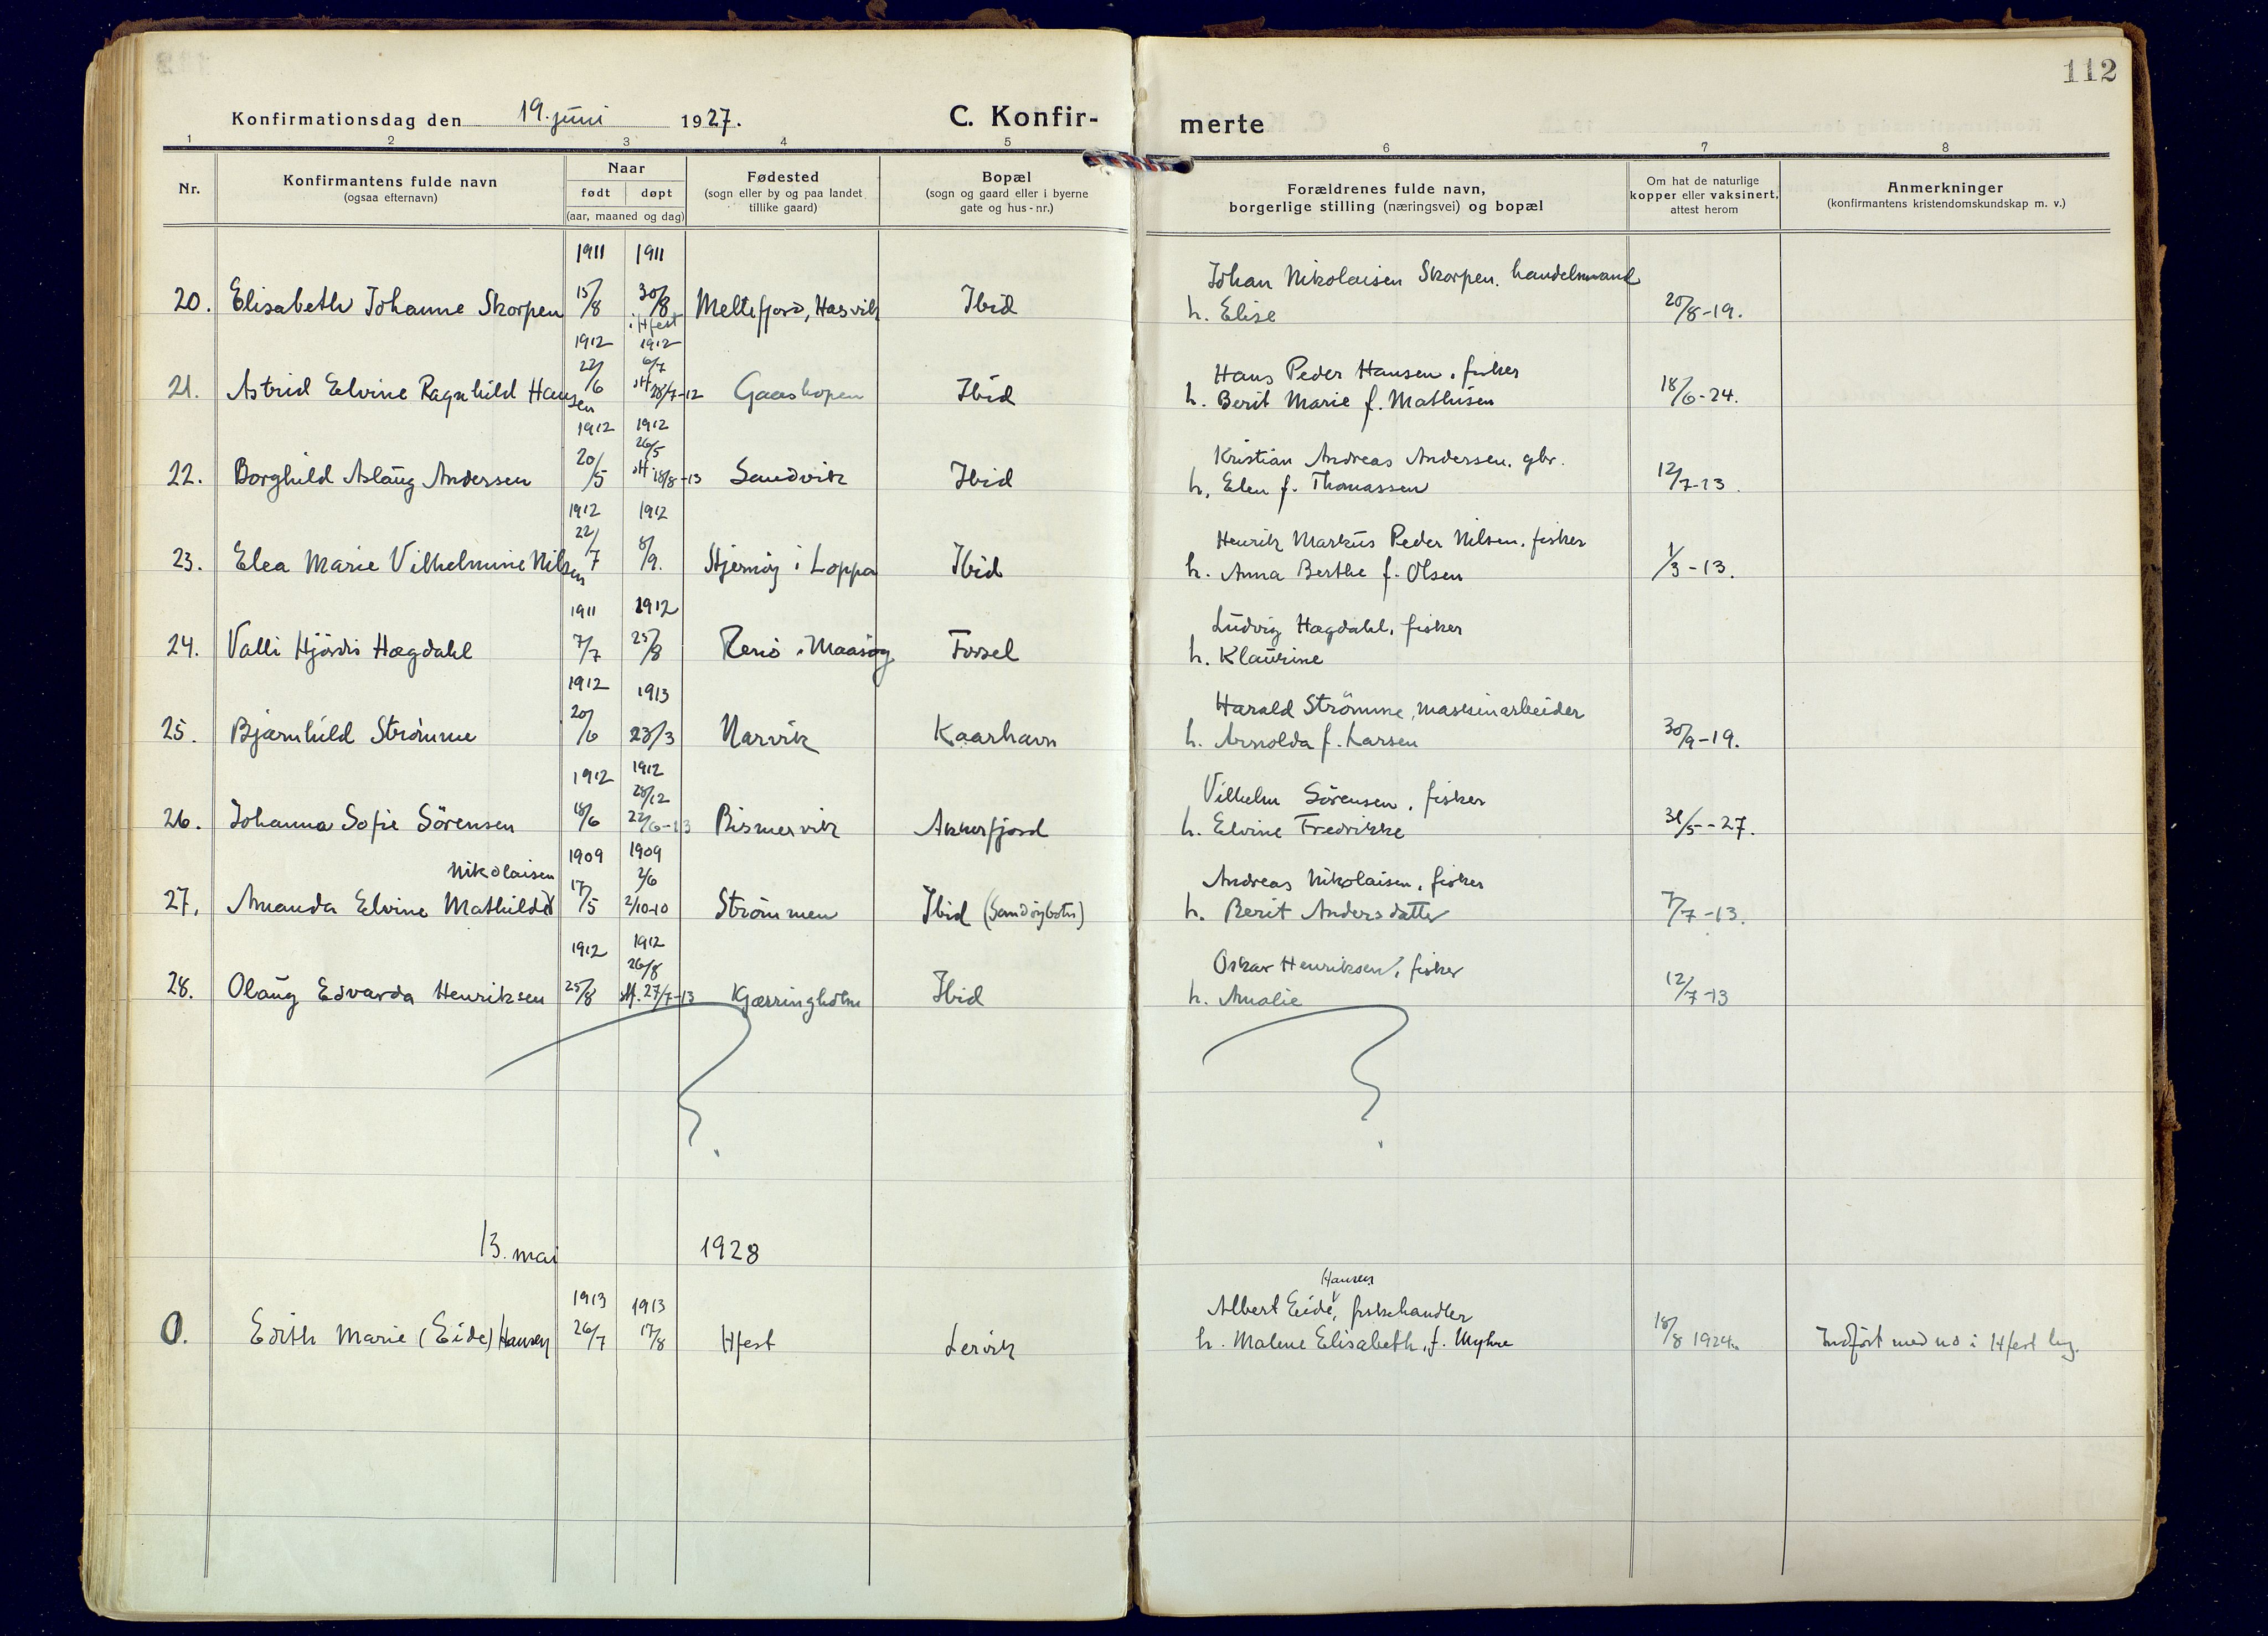 112
Konfirmationsdag den 19. juni 1927. C. Konfir-
merte
1 2 3 4 5 6 7 8
Nr.
Konfirmantens fulde navn
(ogsaa efternavn)
Naar
født døpt
(aar, maaned og dag)
Fødested
(sogn eller by og paa landet
tillike gaard)
Bopæl
(sogn og gaard eller i byerne
gate og hus-nr.)
Forældrenes fulde navn,
borgerlige stilling (næringsvei) og bopæl
Om hat de naturlige
kopper eller vaksinert,
attest herom
Anmerkninger
(konfirmantens kristendomskundskap m. v.)
1911 1911
Johan Nikolaisen Skorpen. handelsmand
20. Elisabeth Johanne Skorpen 15/8 30/8 Meltefjord, Hasvik Ibid h. Elise 20/8-19.
i Hfest
1912 1912
22/6 6/7
Hans Peder Hansen, fisker
21. Astrid Elvine Ragnhild Hansen st 28/7-12 Gaashopen Ibid h. Berit Marie f. Mathisen 18/6-24.
1912 1912
20/5 26/5
Kristian Andreas Andersen, gbr.
22. Borghild Aslaug Andersen st 18/8-13 Sandvik Ibid h. Elen f. Thomassen 12/7-13.
1912 1912
22/7 8/9.
Henrik Markus Peder Nilsen, fisker
23. Elea Marie Vilhelmine Nilsen Stjernøy i Loppa Ibid h. Anna Berthe f. Olsen 1/3-13.
1911 1912
Ludvig Hægdahl, fisker
24. Valli Hjördis Hægdahl 7/7 25/8 Renø i Maasøy Forsel h. Klaurine
1912 1913
Harald Strömme, maskinarbeider
25. Bjarnhild Strömme 20/6 23/3 Narvik Kaarhavn h. Arnolda f. Larsen 30/9-19.
1912 1912
28/12
Vilhelm Sörensen, fisker
26. Johanna Sofie Sörensen 18/6 22/6-13 Bismervik Akkerfjord h. Elvine Fredrikke 31/5--27.
1909 1909
Nikolaisen 2/6
Andreas Nikolaisen, fisker
27. Amanda Elvine Mathilde 17/5 2/10-10 Strömmen Ibid (Sandøybotn) h. Berit Andersdatter 7/7-13.
1912 1912
26/8
Oskar Henriksen, fisker
28. Olaug Edvarda Henriksen 25/8 st. 27/7-13 Kjærringholm Ibid h. Amalie 12/7-13
13. mai 1928
Hansen
1913 1913
Albert Eide, fiskehandler
0. Edith Marie (Eide) Hansen 26/7 17/8 Hfest Lervik h. Malene Elisabeth, f. Myhre 18/8 1924. Indført med no i Hfest